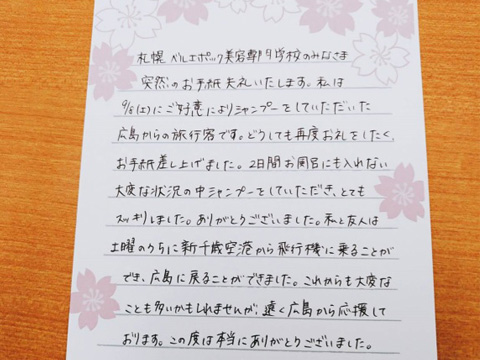 札幌ベルエポック美容専門学校のみなさま
突然のお手紙失礼いたします。私は
9/8(土)にご好意によりシャンプーをしていただいた
広島からの旅行客です。どうしても再度お礼をしたく、
お手紙差し上げました。2日間お風呂にも入れない
大変な状況の中シャンプーをしていただき、とても
スッキリしました。ありがとうございました。私と友人は
土曜のうちに新千歳空港から飛行機に乗ることが
でき、広島に戻ることができました。これからも大変な
ことも多いかもしれませんが、遠く広島から応援して
おります。この度は本当にありがとうございました。